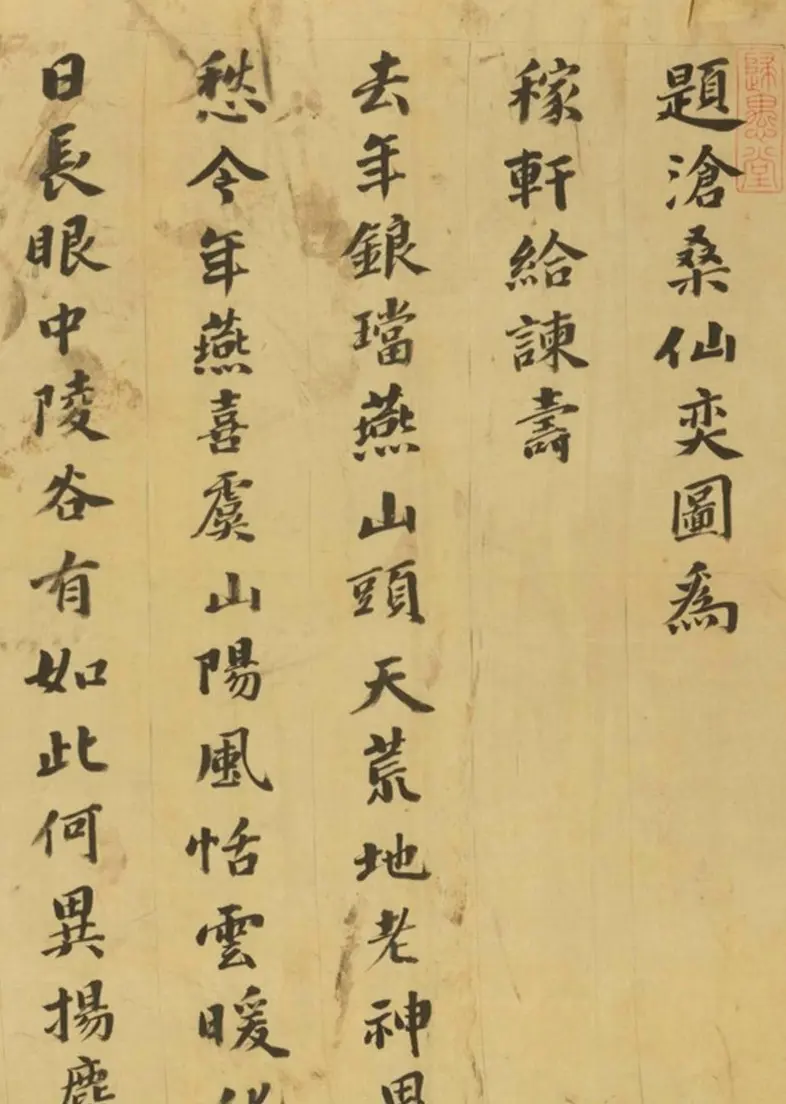 題滄桑仙奕圖爲
稼軒給諫壽
去年鋃璫燕山頭天荒地老神
愁今年燕喜虞山陽風恬雲暖
日長眼中陵谷有如此何異揚